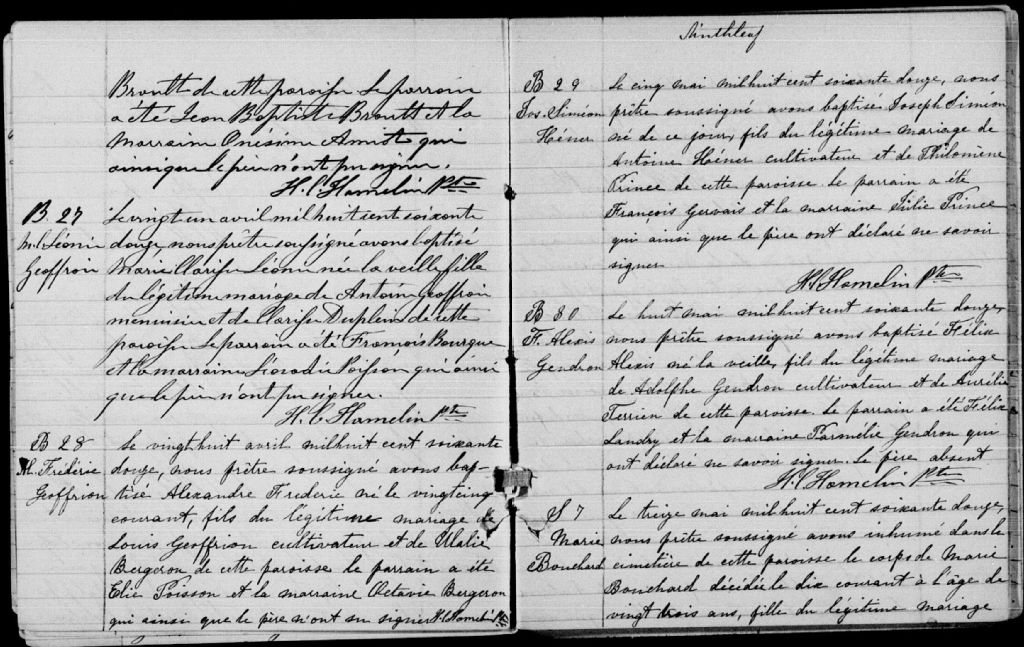 Brault de cette paroisse Le parrain
a été Jean Baptiste Brault et la
marraine Onésime Amiot qui
ainsi que le père n'ont pu signer.
H. C. Hamelin Ptre
B. 27
M. C. Léonie
Geoffroin
Le vingt un avril mil huit cent soixante
douze nous prêtre soussigné avons baptisé
Marie Clarisse Léonie née la veille fille
du légitime mariage de Antoine Geoffroin
menuisier et de Clarisse Duplein de cette
paroisse Le parrain a été François Bourque
et la marraine Poisson qui ainsi
que le père n'ont pu signer.
H. C. Hamelin Ptre
B 28
Al. Fréderic
Geoffrion
Le vingt huit avril mil huit cent soixante
douze, nous prêtre soussigné avons bap-
tisé Alexandre Frederic né le vingt cinq
courant, fils du légitime mariage de
Louis Geoffrion cultivateur et de Ulalie
Bergeron de cette paroisse le parrain a été
Elie Poisson et la marraine Octavie Bergeron
qui ainsi que le père n'ont su signer H. C. Hamelin Ptre
Ninthleaf
B 29
Jos. Siméon
Héner
Le cinq mai mil huit cent soixante douze, nous
prêtre soussigné avons baptisé Joseph Siméon
né de ce jour, fils du légitime mariage de
Antoine Héner cultivateur et de Philomène
Prince de cette paroisse. Le parrain a été
François Gervais et la marraine Prince
qui ainsi que le père ont déclaré ne savoir
signer
H. C. Hamelin Ptre
B 30
F. Alexis
Gendron
Le huit mai mil huit cent soixante douze,
nous prêtre soussigné avons baptisé Félix
Alexis né la veille, fils du légitime mariage
de Adolphe Gendron cultivateur et de Aurélie
Terrien de cette paroisse. Le parrain a été Félix
Landry et la marraine Parmélie Gendron qui
ont déclaré ne savoir signer. Le père absent
H. C. Hamelin Ptre
S 7
Marie
Bouchard
Le treize mai mil huit cent soixante douze,
nous prêtre soussigné avons inhumé dans le
cimetière de cette paroisse le corps de Marie
Bouchard décédée le dix courant à l'âge de
vingt trois ans, fille du légitime mariage